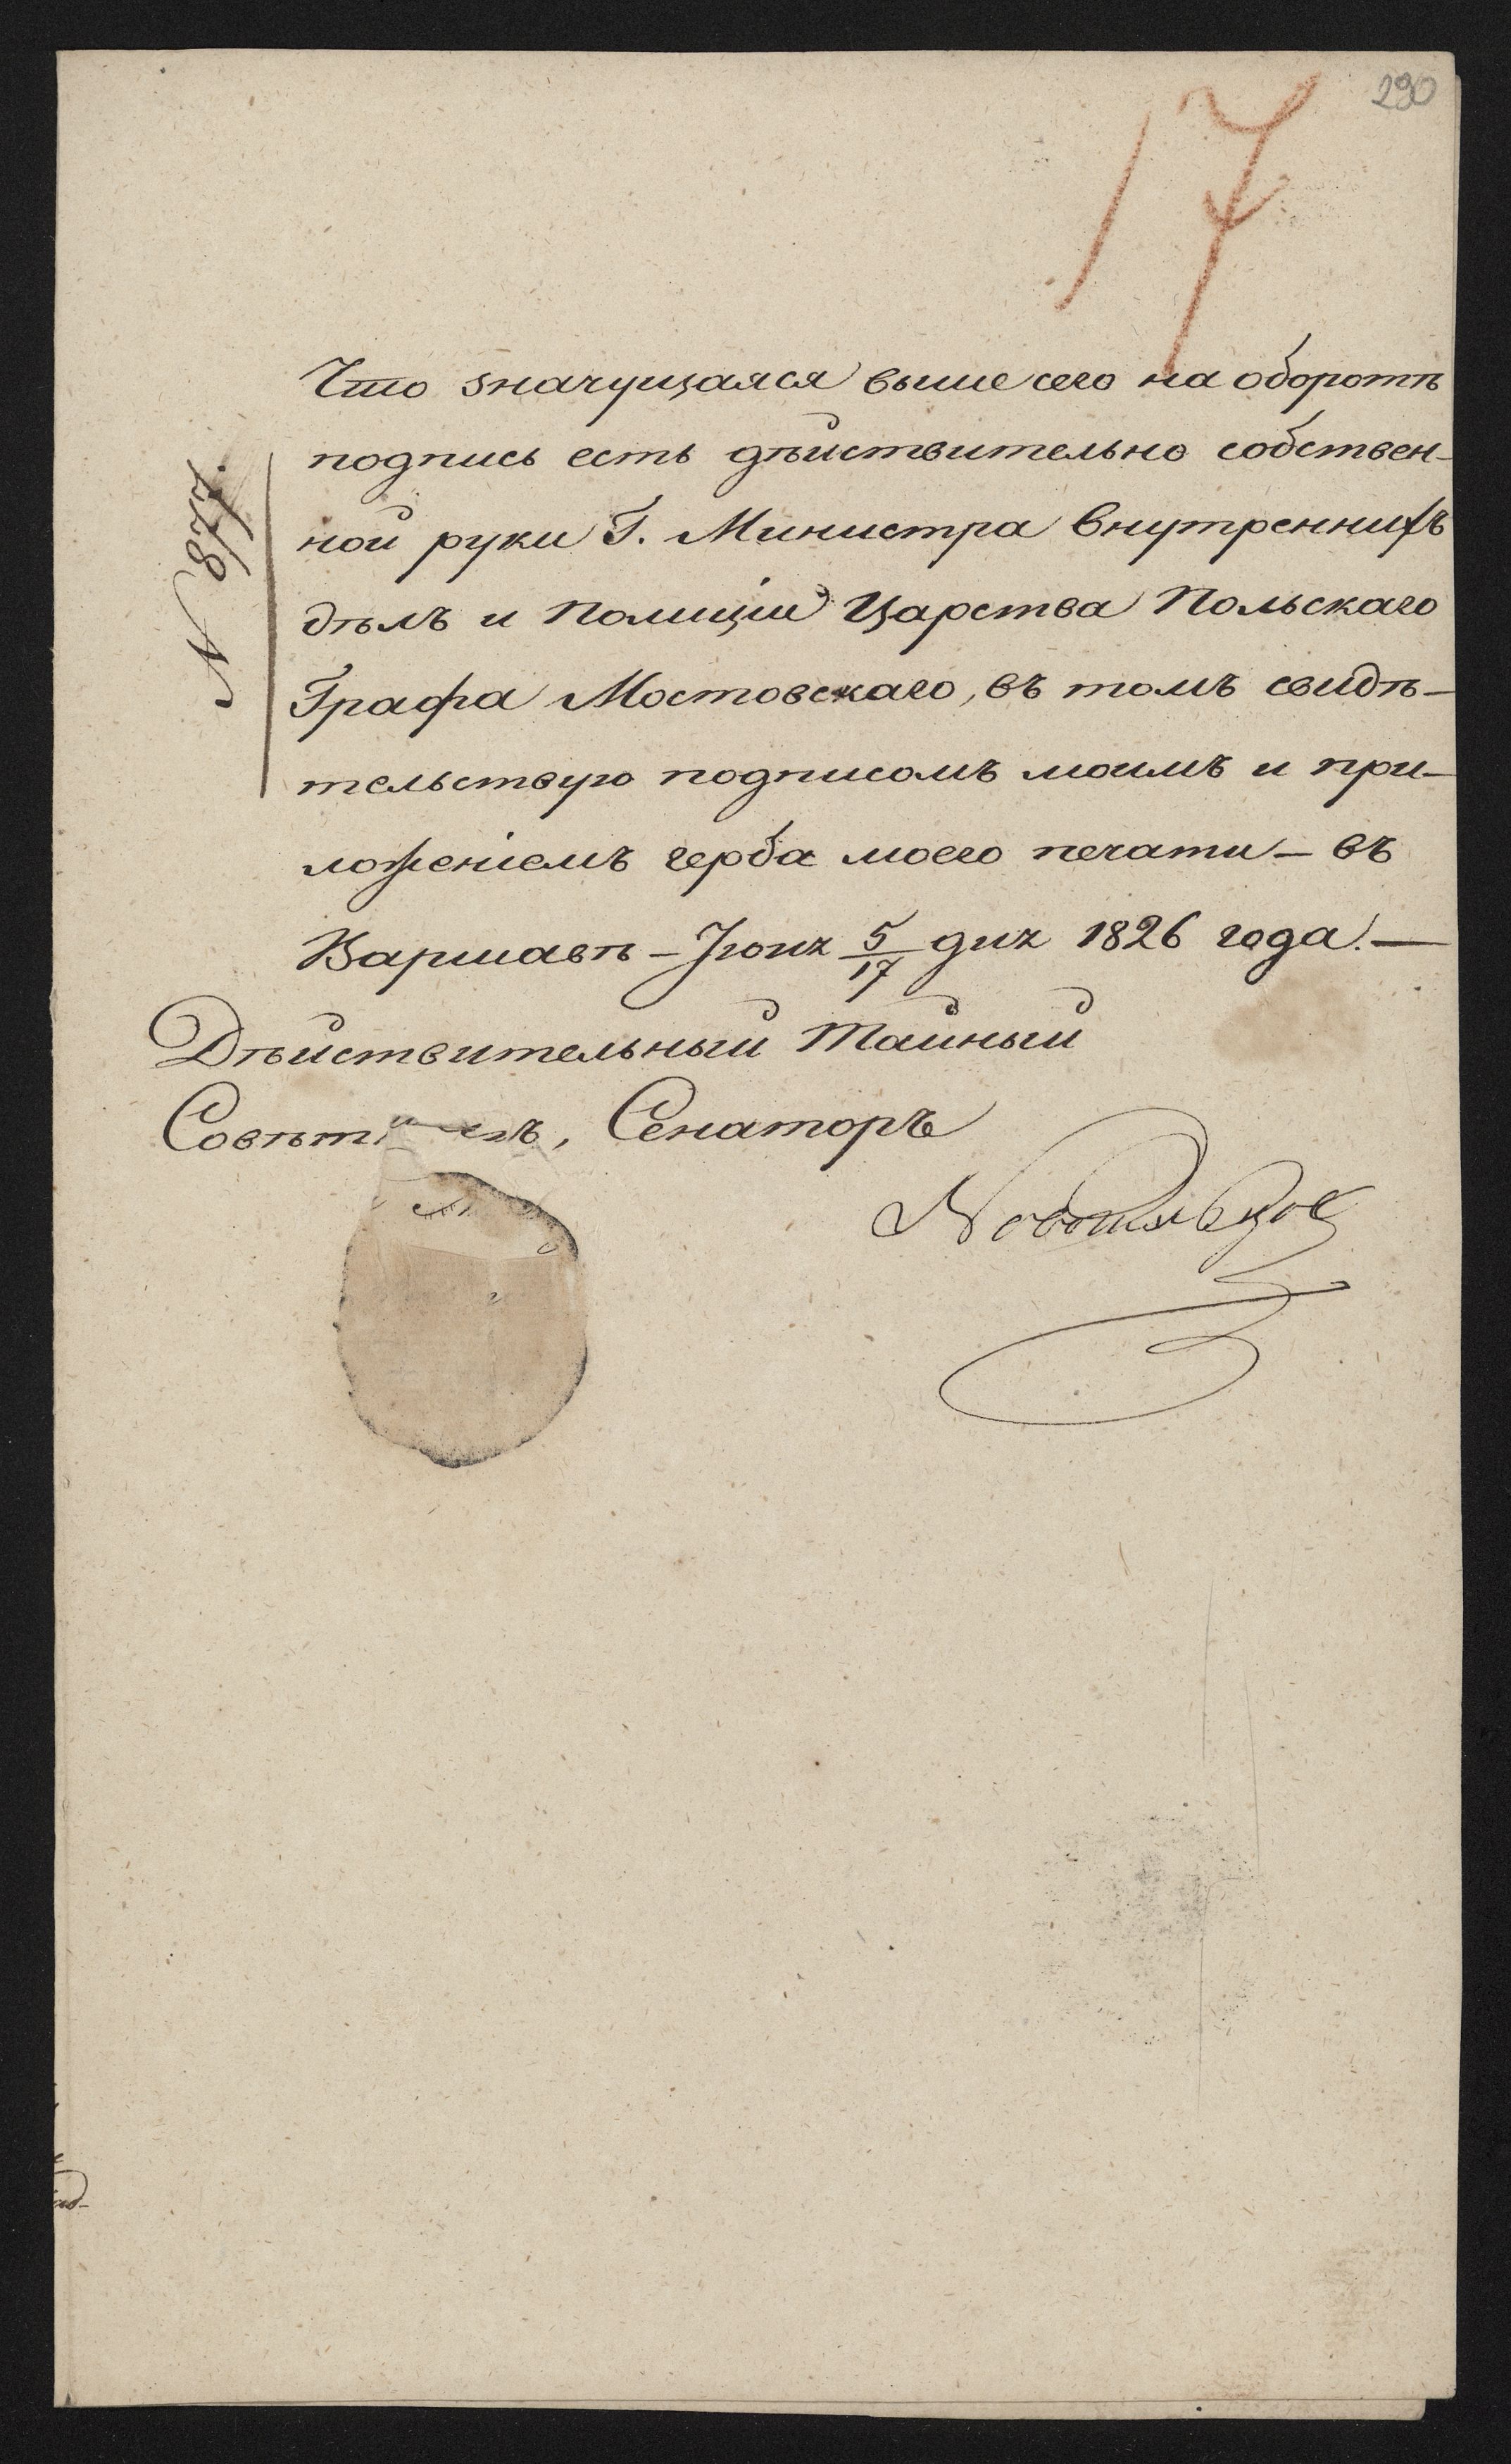 290
17
Что значущаяся выше сего на оборотѣ
подпись есть дѣйствительно собствен-
ной руки Г. Министра Внутреннихъ
дѣлъ и Полиціи Царства Польскаго
Графа Мостовскаго, въ томъ свидѣ-
тельствую подписомъ моимъ и при-
ложеніемъ герба моего печати – въ
Варшавѣ – Іюня 5/17 дня 1826 года. —
Дѣйствительный Тайный
Совѣтникъ, Сенаторъ
Новосильцов